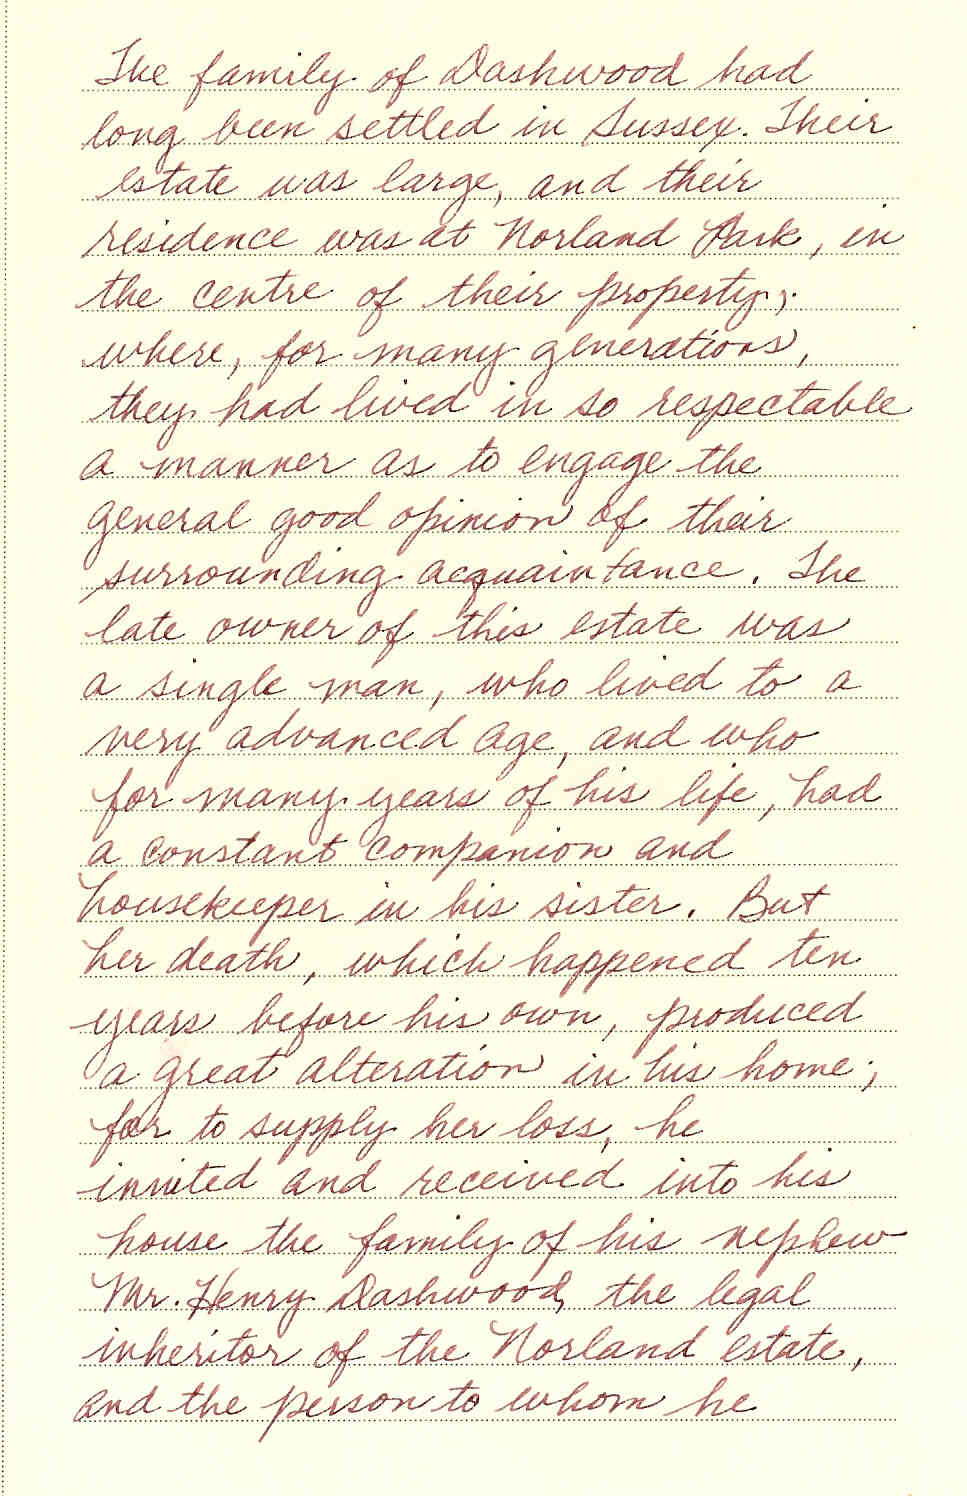 The family of Dashwood had
long been settled in Sussex. Their
estate was large, and their
residence was at Norland Park, in
the centre of their property,
where, for many generations,
they had lived in so respectable
a manner as to engage the
general good opinion of their
surrounding acquaintance. The
late owner of this estate was
a single man, who lived to a
very advanced age, and who
for many years of his life, had
a constant companion and
housekeeper in his sister. But
her death, which happened ten
years before his own, produced
a great alteration in his home;
for to supply her loss, he
invited and received into his
house the family of his nephew
Mr. Henry Dashwood, the legal
inheritor of the Norland estate,
and the person to whom he